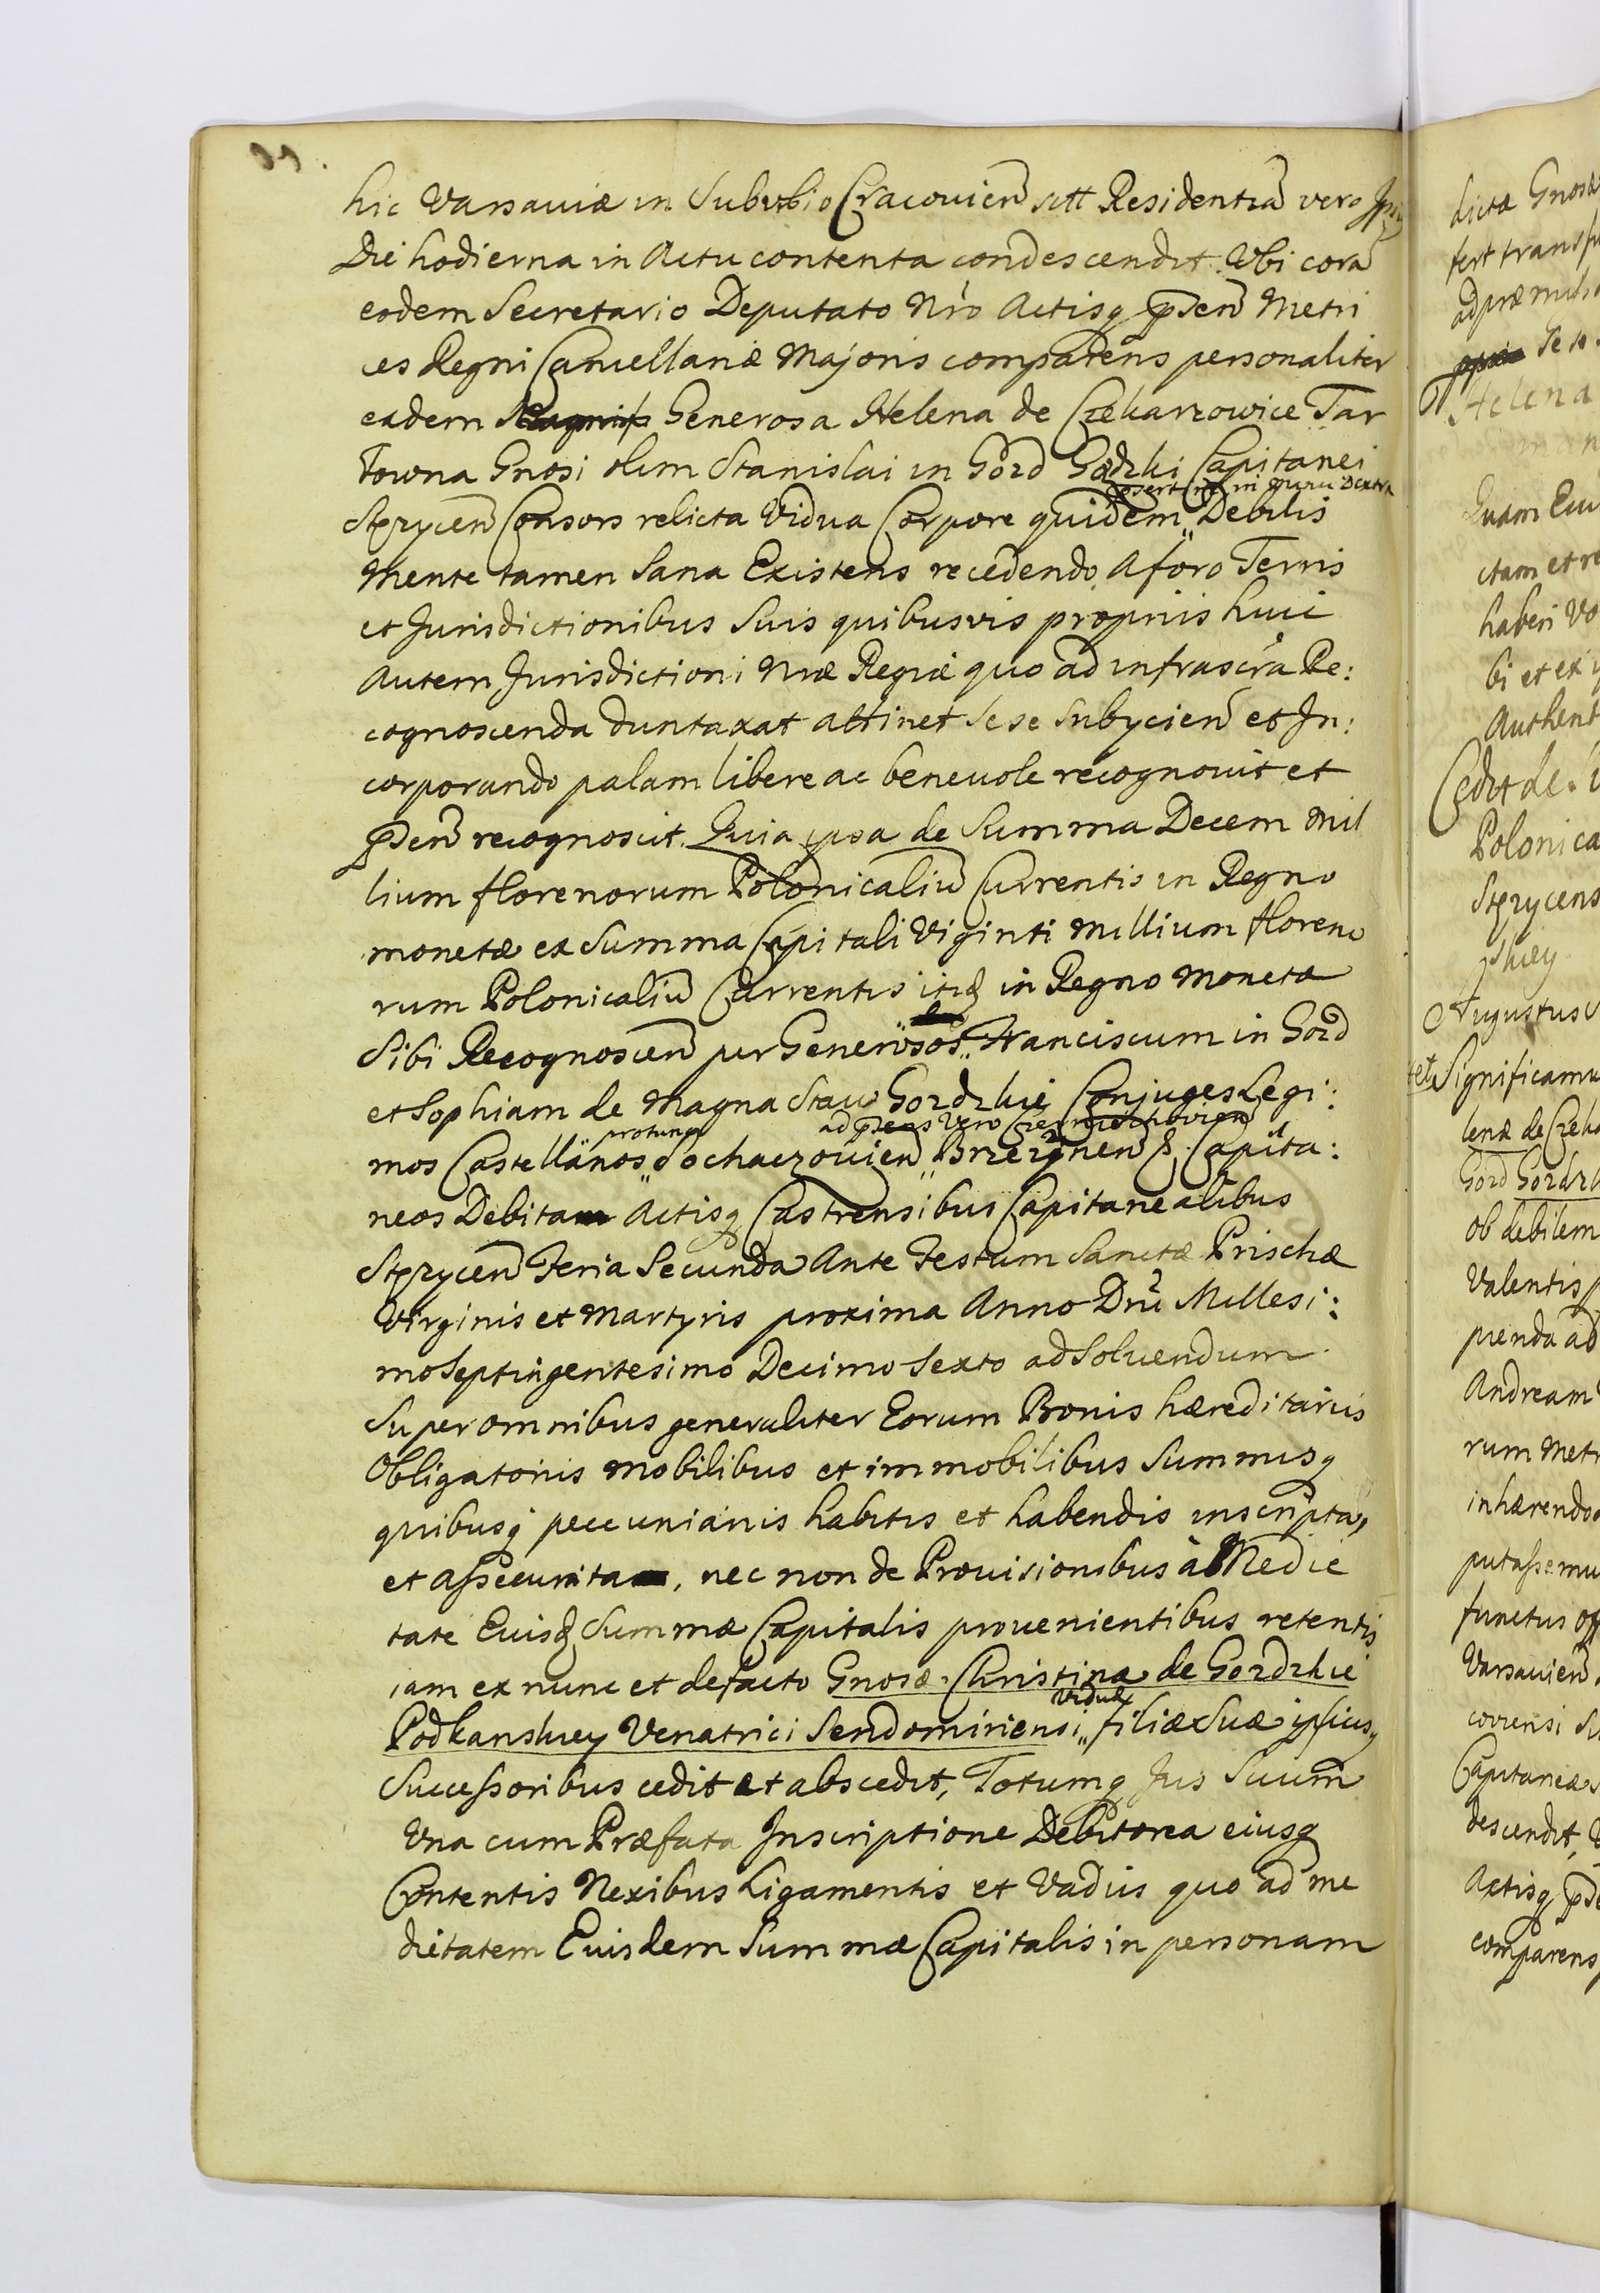 hic Varsaviæ in Suburbio Cracovien sitt Residentiã vero
Die hodierna in Actu contenta condescendit. Ubi corã
eodem Secretario Deputato Nro Actisq pñden Metri
ces Regni Cancellariæ Majoris comparens personaliter
eadem Generosa Helena de Czekarzowice Tar
łowna Gnosi olim Stanislai in Gozd Gozdzki Capitanei
in manu dextra
Stęzycen Consors relicta Vidua Corpore quidem Debilis
Mente tamen Sana Existens recedendo a foro Terris
et Jurisdictionibus Suis quibusvis propriis huic
Autem Jurisdictioni Nræ Regiæ quo ad infrascra Re:
cognoscenda duntaxat attinet sese subycien et In:
corporando palam libere ac benevole recognovit et
pñden recognoscit. Quia ipsa de Summa Decem Mil
lium florenorum Polonicaliũ Currentis in Regno
monetæ ex Summa Capitali Viginti Millium floreno
rum Polonicaliũ Currentis itid in Regno Moneta
Sibi Recognoscen per Generosos Franciscum in Gozd
et Sophiam de Magna Staw Gozdzkie Conjuges Legi:
protunc ad præns vero
mos Castellanos Sochaczovien Brzezinen &. Capita:
neos Debita Actisq Castrensibus Capitanealibus
Stęzycen Feria Secunda Ante Festum Sanctæ Priscæ
Virginis et Martyris proxima Anno Dni Millesi:
mo Septingentesimo Decimo Sexto ad Solvendum
Super omnibus generaliter Eorum Bonis hæreditariis
Obligatoriis mobilibus et immobilibus Summisq
quibusq pecuniariis habitis et habendis inscripta,
et assecurita, nec non de Provisionibus à Medie
tate Euisd Summæ Capitalis provenientibus retentis
iam ex nunc et defacto Gnosæ Christinæ de Gozdzkie
Viduæ
Podkanskiey Venatrici Sendomiriensi filiæ Suæ ipsiusq
Successoribus cedit et abscedit, Totumq Jus Suum
Una cum Præfata Inscriptione Debitorea eiusq
Contentis Nexibus Ligamentis et Vadiis quo ad me
dietatem Euisdem Summæ Capitalis in personam
dictæ Gnosæ
fert transfu
Helena
Quam Eui
ctam et re
haberi Vo
bi et ex
Authent
Cedit de
Polonica
Stęzycens
skiey
Augustus
Significamu
lenæ de Czeka
Gozd Gozdzk
ob debilem
Valentis
pienda ad
Andream
rum Metr
inhærendo
putassemu
functus off
Varsavien
coviensi
Capitanea
descendit,
Actisq
comparens